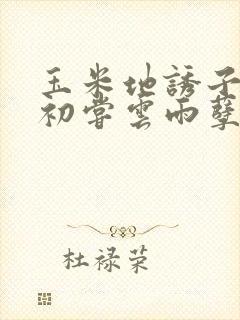 玉米地誘子
初嘗雲雨孽
杜禄荣